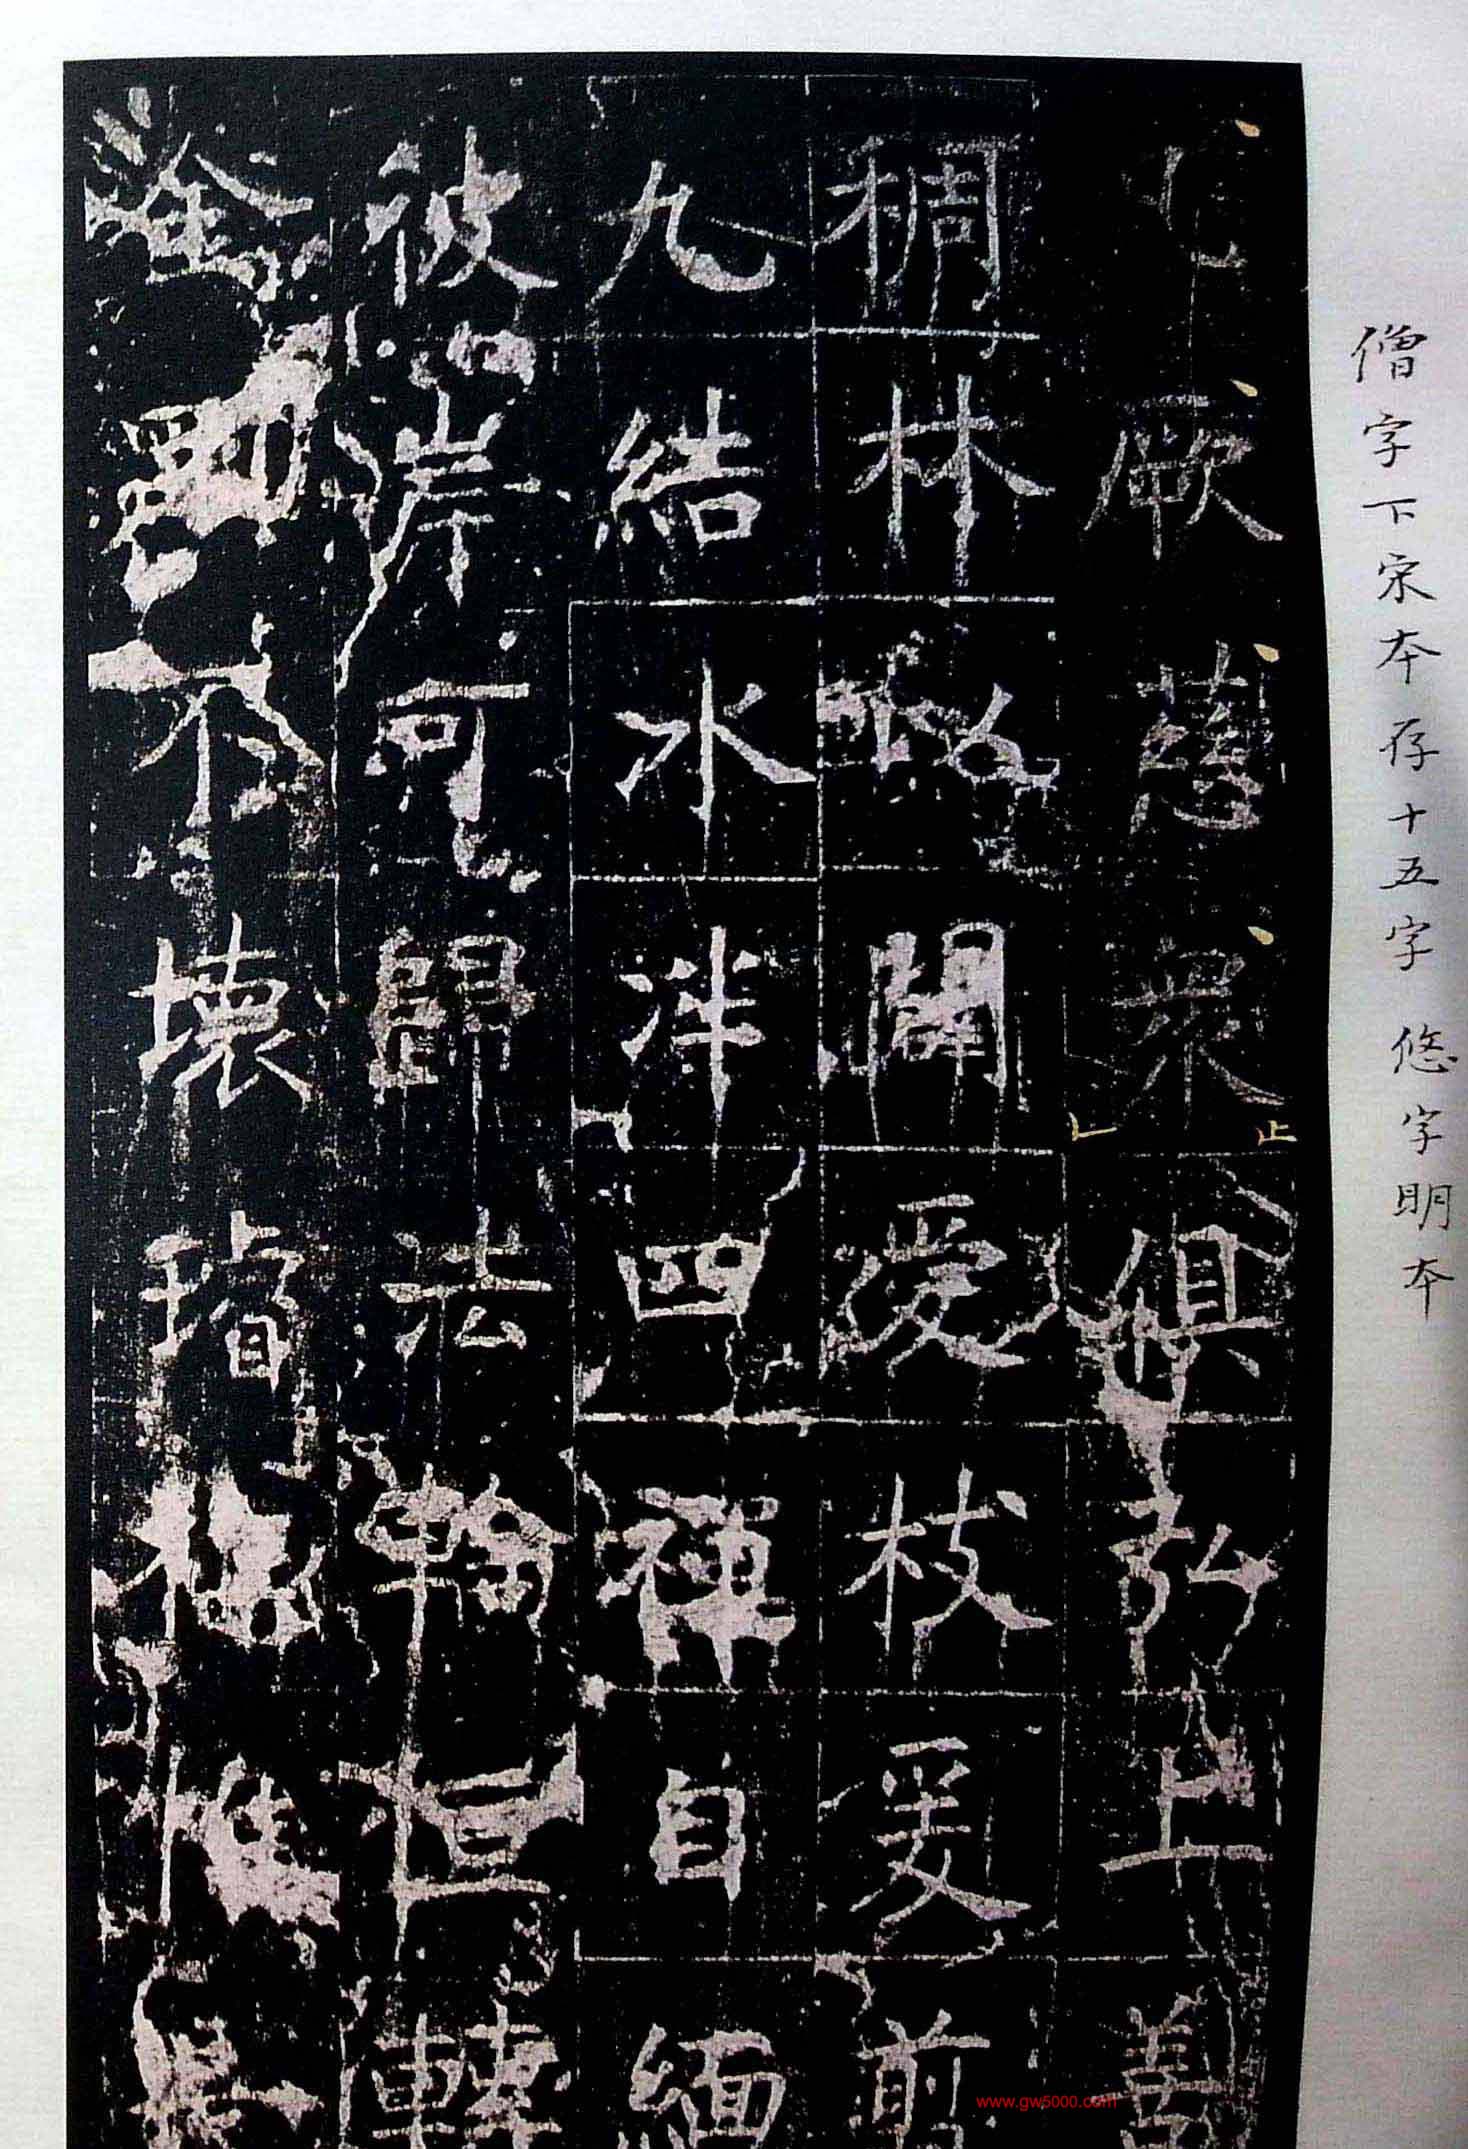 僧字下宋本存十五字 悠字明本
厥慈眾俱弘上善
稠林 開愛枝爰剪
九結水泮四禪自緬
彼岸可歸法輪恒轉
塗 不壞 惟
止
www.gw5000.com